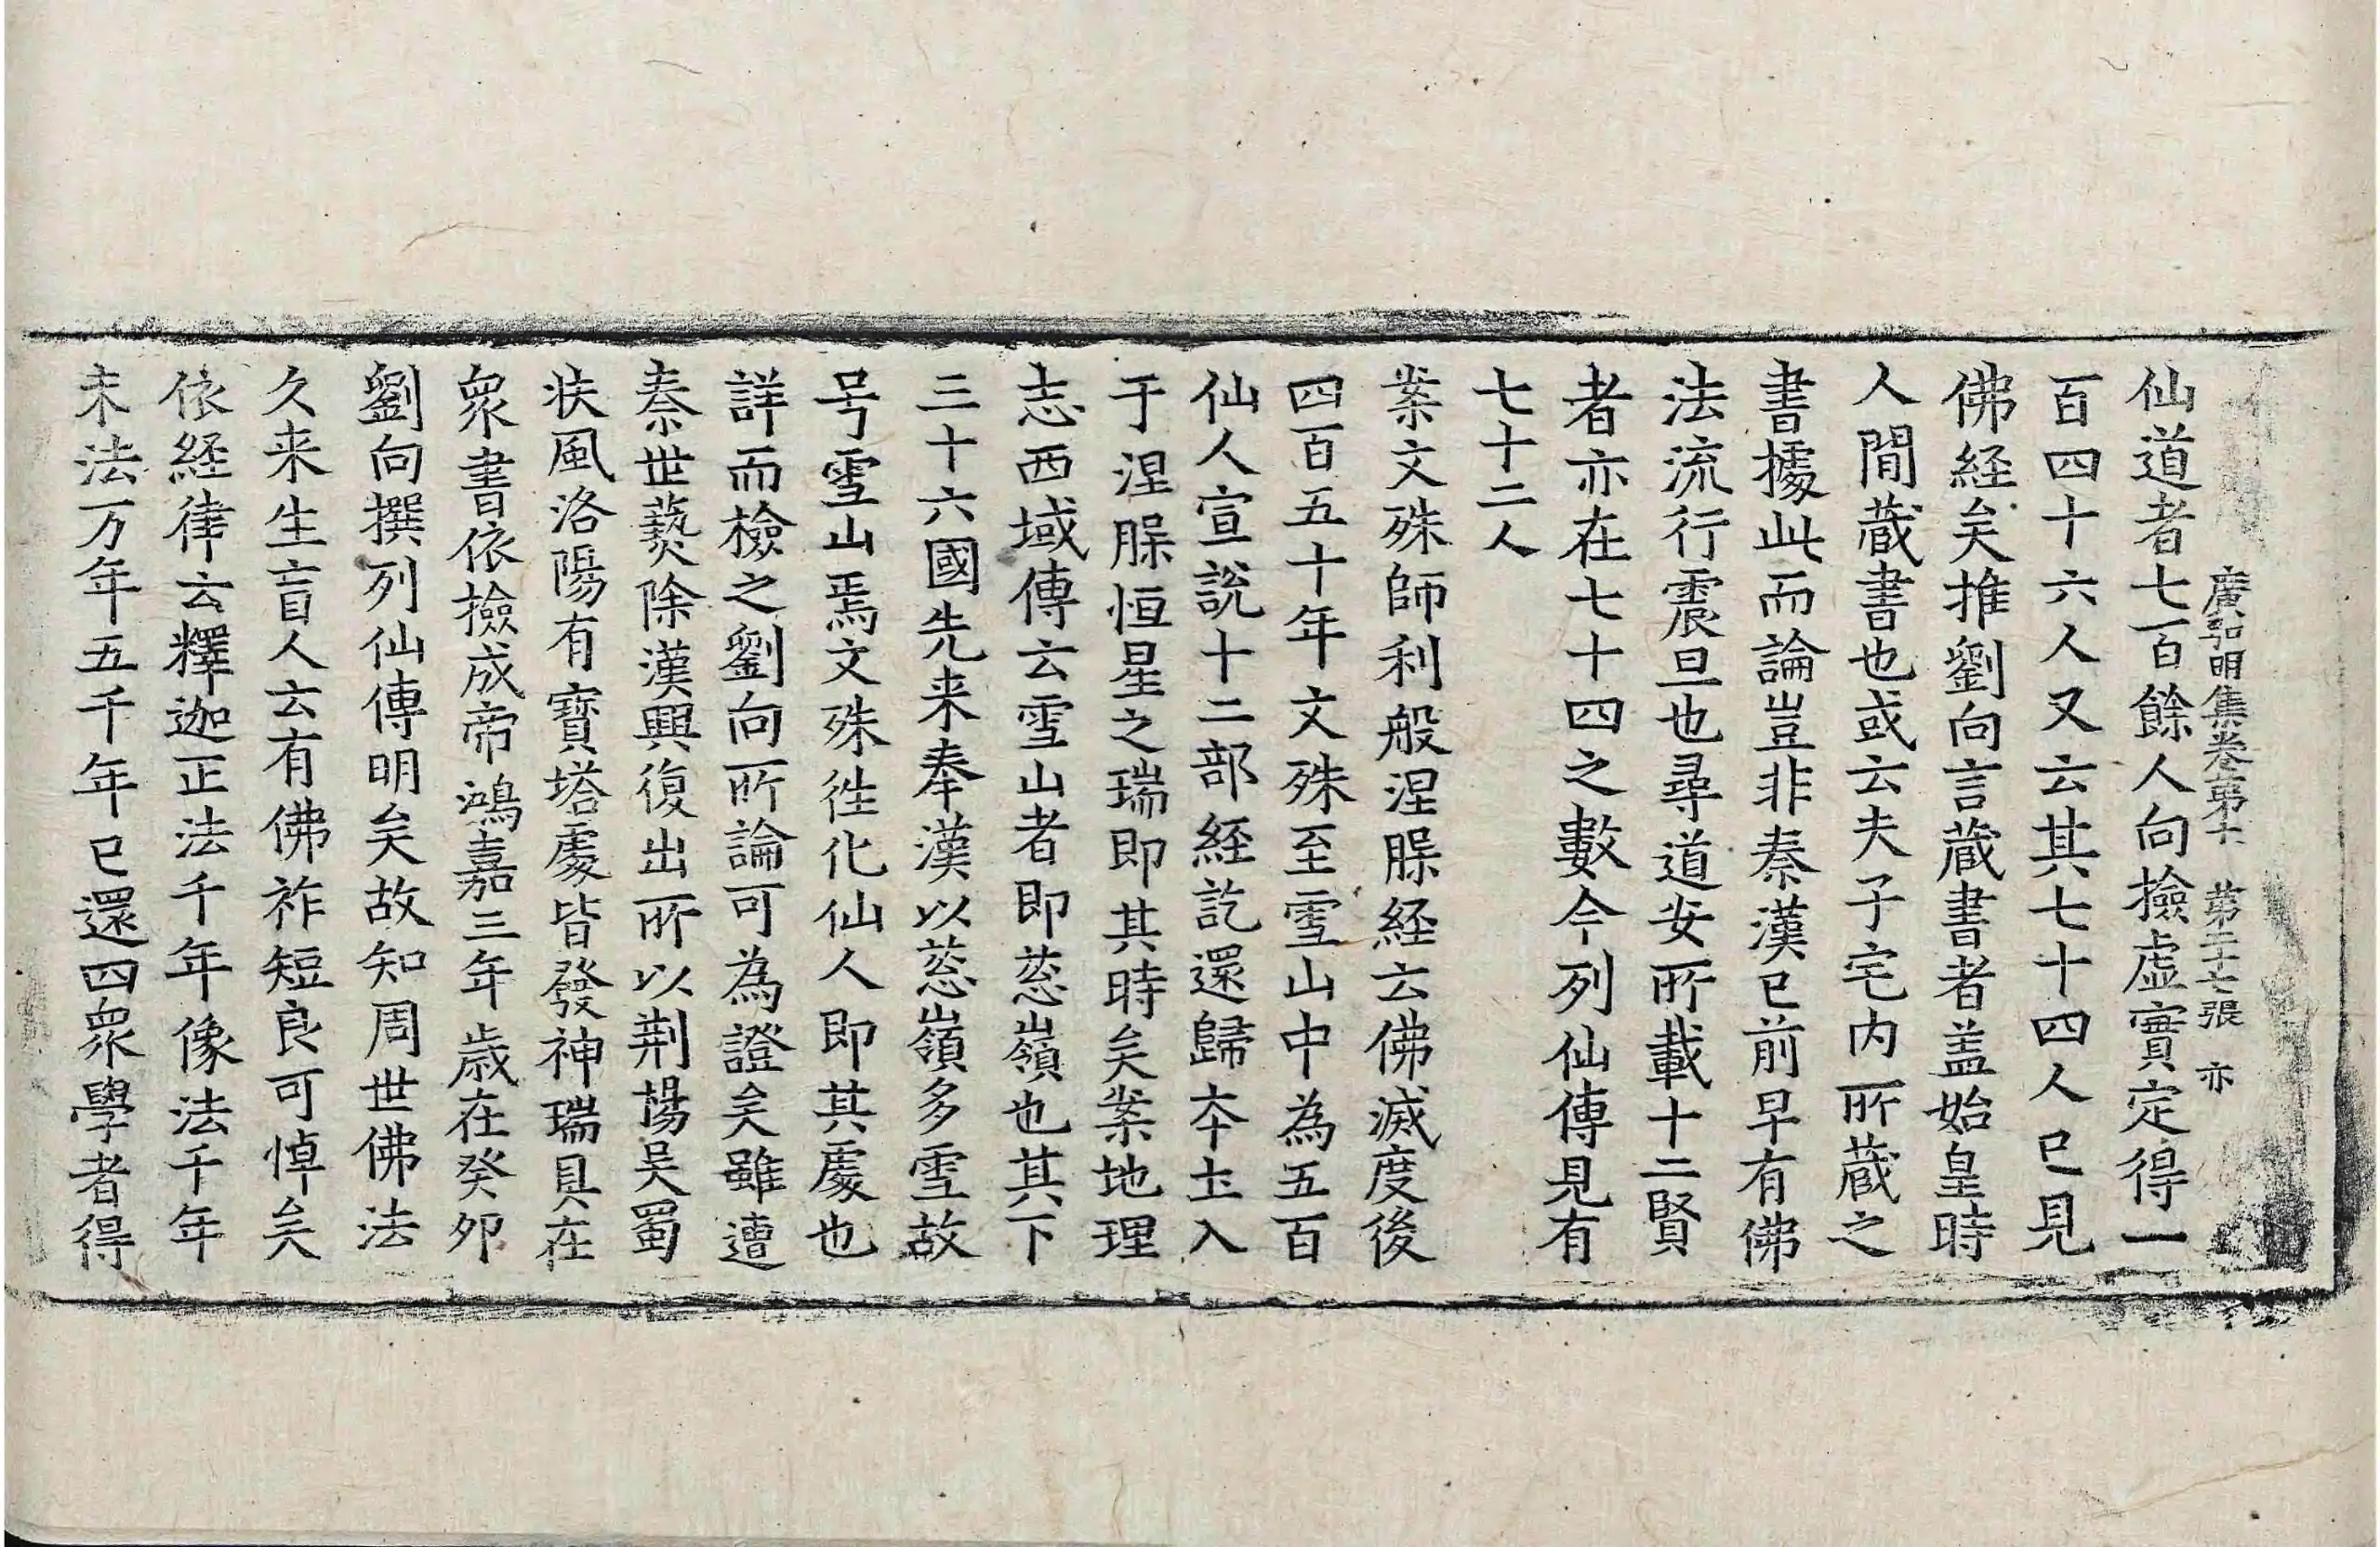 廣弘明集卷第十一 第二十七張 亦
仙道者七百餘人向撿虛實定得一
百四十六人又云其七十四人已見
佛経矣推劉向言蔵書者盖始皇時
人閒蔵書也或云夫子宅内所蔵之
書據此而論豈非秦漢已前早有佛
法流行震旦也尋道安所載十二賢
者亦在七十四之數今列仙傳見有
七十二人
案文殊師利般涅槃経云佛滅度後
四百五十年文殊至雪山中為五百
仙人宣說十二部経訖還歸本土入
于涅槃恒星之瑞即其時矣案地理
志西域傳云雪山者即葱嶺也其下
三十六國先来奉漢以葱嶺多雪故
号雪山焉文殊徃化仙人即其處也
詳而檢之劉向所論可為證矣雖遭
秦世爇除漢興復出所以荆楊吴蜀
扶風洛陽有寳塔處皆發神瑞具在
衆書依撿成帝鴻嘉三年歳在癸夘
劉向撰列仙傳明矣故知周世佛法
久来生盲人云有佛祚短良可悼矣
依経律云釋迦正法千年像法千年
末法万年五千年已還四衆學者得